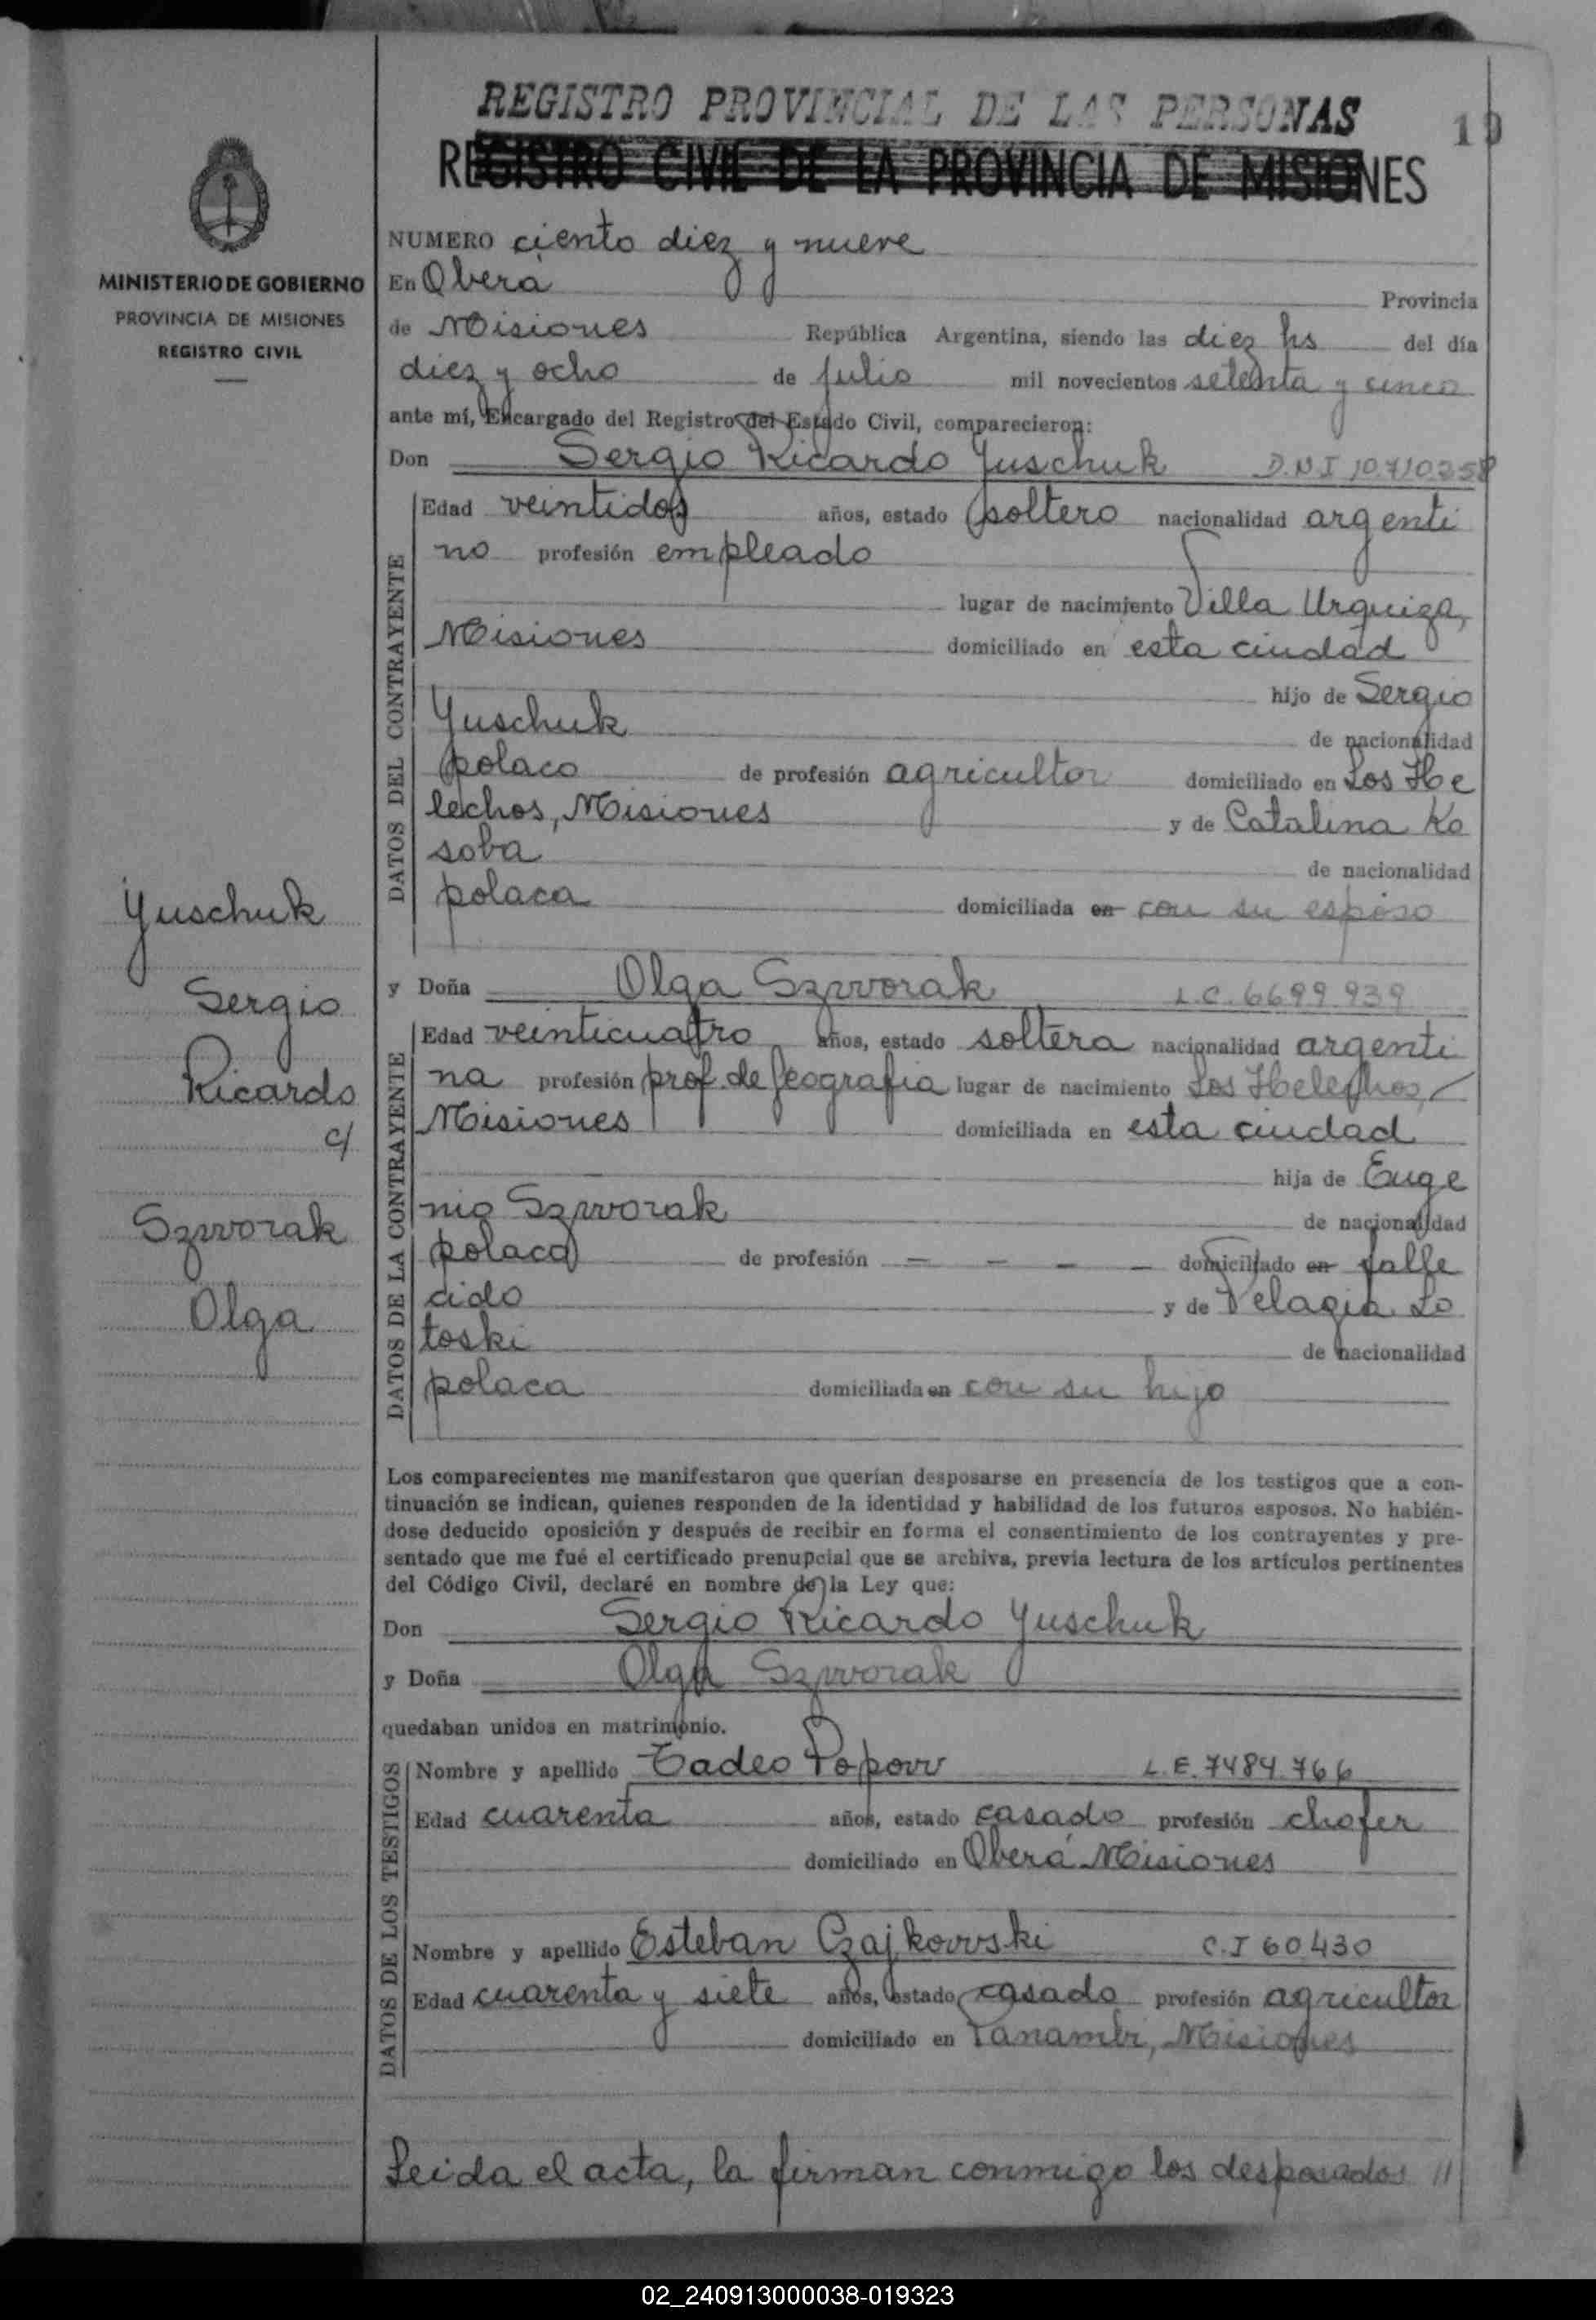 REGISTRO PROVINCIAL DE LAS PERSONAS
19
REGISTRO CIVIL DE LA PROVINCIA DE MISIONES
MINISTERIO DE GOBIERNO
PROVINCIA DE MISIONES
REGISTRO CIVIL
NUMERO ciento diez y nueve
En Oberá Provincia
de Misiones República Argentina, siendo las diez hs del día
diez y ocho de julio mil novecientos setenta y cinco
ante mí, Encargado del Registro del Estado Civil, comparecieron:
Don Sergio Ricardo Yuschuk D.N.I 10.710.258
DATOS DEL CONTRAYENTE
Edad veintidos años, estado soltero nacionalidad argenti
no profesión empleado
lugar de nacimiento Villa Urquiza,
Misiones domiciliado en esta ciudad
hijo de Sergio
Yuschuk de nacionalidad
polaco de profesión agricultor domiciliado en Los He
lechos, Misiones y de Catalina Ko
soba de nacionalidad
polaca domiciliada en con su esposo
Yuschuk
Sergio
Ricardo
c/
Szworak
Olga
y Doña Olga Szworak L.C. 6699.939
DATOS DE LA CONTRAYENTE
Edad veinticuatro años, estado soltera nacionalidad argenti
na profesión prof. de geografia lugar de nacimiento Los Helechos,
Misiones domiciliada en esta ciudad
hija de Euge
nio Szworak de nacionalidad
polaca de profesión — — — — domiciliado en falle
cido y de Pelagia Lo
toski de nacionalidad
polaca domiciliada en con su hijo
Los comparecientes me manifestaron que querían desposarse en presencia de los testigos que a con-
tinuación se indican, quienes responden de la identidad y habilidad de los futuros esposos. No habién-
dose deducido oposición y después de recibir en forma el consentimiento de los contrayentes y pre-
sentado que me fué el certificado prenupcial que se archiva, previa lectura de los artículos pertinentes
del Código Civil, declaré en nombre de la Ley que:
Don Sergio Ricardo Yuschuk
y Doña Olga Szworak
quedaban unidos en matrimonio.
DATOS DE LOS TESTIGOS
Nombre y apellido Tadeo Popow L.E. 7484.766
Edad cuarenta años, estado casado profesión chofer
domiciliado en Oberá Misiones
Nombre y apellido Esteban Czajkowski C.I 60.430
Edad cuarenta y siete años, estado casado profesión agricultor
domiciliado en Panambi, Misiones
Leida el acta, la firman conmigo los desposados //
02_240913000038-019323